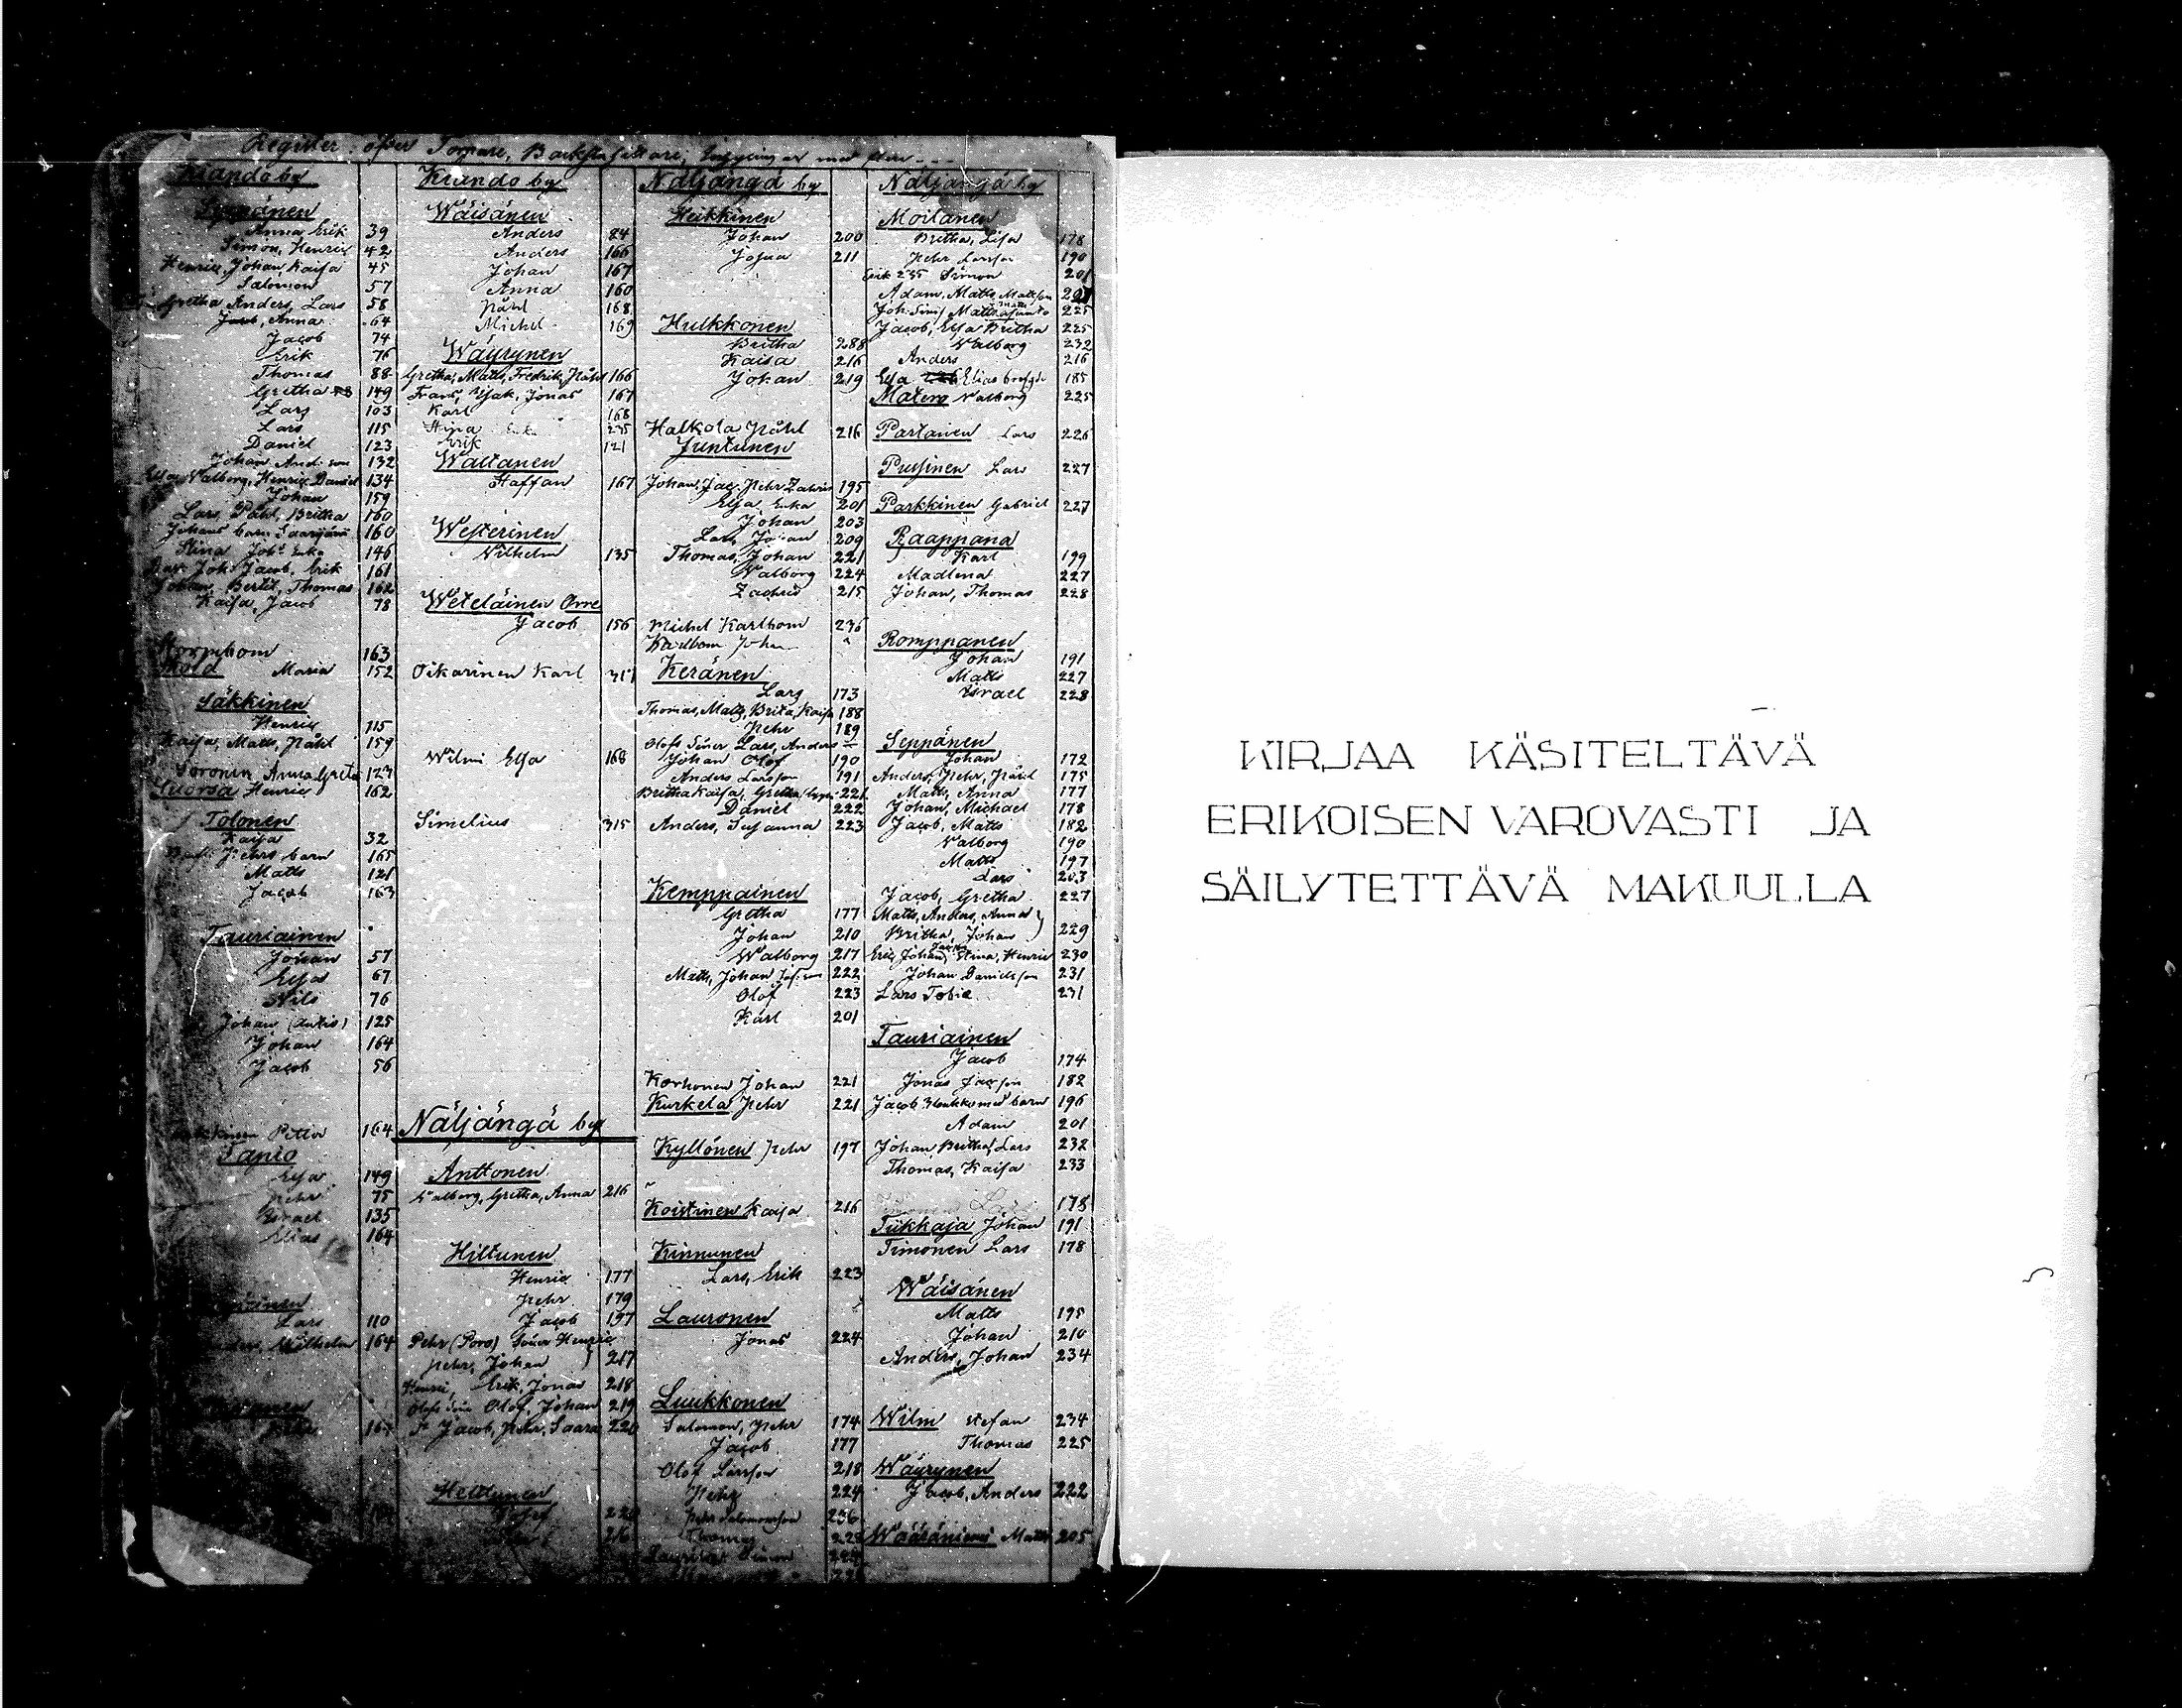 Register öfver Torpare, Backstusittare, Inhysingar med flere
Kiando by
Seppänen
Anna Erik 39
Simon, Henric 42
Henric, Johan Kaisa 45
Salomon 57
Gretha Anders, Lars 58
Jacob, Anna 64
Jacob 74
Erik 76
Thomas 88
Gretha 149
Lars 103
Lars 115
Daniel 123
Johan And:son 132
Walborg, Henric Daniel 134
Johan 159
Lars, Påhl, Britha 160
Johans barn Saarijärvi 160
Stina Joh: Enka 146
Joh: Jacob, Erik 161
Johan, Bertil, Thomas 162
Kaisa, Jacob 78
163
Sköld Maria 152
Säkkinen
Henric 115
Kaisa, Matts, Påhl 159
Soronen Anna Greta 123
Suorsa Henric 162
Tolonen
Kaisa 32
Pehrs barn 165
Matts 121
Jacob 163
Tauriainen
Johan 57
Elsa 67
Nils 76
Johan (Antis) 125
Johan 164
Jacob 56
Petter 164
Tanio
Elsa 149
Pehr 75
Israel 135
Elias 164
Lars 110
Wilhelm 164
Kiando by
Wäisänen
Anders 84
Anders 166
Johan 167
Anna 160
Påhl 168
Michel 169
Wäyrynen
Gretha, Matts, Fredrik, Påhl 166
Frans, Isak, Jonas 167
Karl 168
Stina Enka 235
Erik 121
Waltanen
Staffan 167
Westerinen
Wilhelm 135
Weteläinen Orre
Jacob 156
Oikarinen Karl 311
Wilmi Elsa 168
Simelius 315
Näljängä by
Anttonen
Walborg, Gretha, Anna 216
Hiltunen
Henric 177
Pehr 179
Jacob 197
Pehr (Poro) Söner Henric
Pehr, Johan } 217
Henric, Erik, Jonas 218
Olofs Söner Olof, Johan 219
Jacob, Pehr, Saara 220
Heikkinen
Näljängä by
Heikkinen
Johan 200
Josua 211
Hulkkonen
Britha 288
Kaisa 216
Johan 219
Halkola Påhl 216
Juntunen
Johan, Jac. Pehr Zachris 195
Elsa Enka 201
Johan 203
Lars, Johan 209
Thomas, Johan 221
Walborg 224
Zachris 215
Michel Karlbom 236
Karlbom Johan "
Keränen
Lars 173
Thomas, Matts, Brita, Kaisa 188
Pehr 189
Olofs Söner Lars, Anders —
Johan Olof 190
Anders Larsson 191
Britha Kaisa, Gretha 221
Daniel 222
Anders, Susanna 223
Kemppainen
Gretha 177
Johan 210
Walborg 217
Matts, Johan Jos:son 222
Olof 223
Karl 201
Korhonen Johan 221
Kurkela Pehr 221
Kyllönen Pehr 197
Koistinen Kaisa 216
Kinnunen
Lars, Erik 223
Lauronen
Jonas 224
Luukkonen
Salomon, Pehr 174
Jacob 177
Olof Larsson 218
Pehr 224
Pehr Salomonsson 236
Thomas 223
Simon 224
Näljängä by
Moilanen
Britha, Lisa 178
Pehr Larsson 190
Erik 235 Simon 201
Adam, Matts Mattsson 201
225
Jacob, Elsa Britha 225
Walborg 232
Anders 216
Elsa Elias 185
Matero Walborg 225
Partanen Lars 226
Pussinen Lars 227
Parkkinen Gabriel 227
Raappana
Karl 199
Madlena 227
Johan, Thomas 228
Romppanen
Johan 191
Matts 227
Israel 228
Seppänen
Johan 172
Anders, Pehr, Påhl 175
Matts, Anna 177
Johan, Michael 178
Jacob, Matts 182
Walborg 190
Matts 197
Lars 203
Jacob, Gretha 227
Matts, Anders, Anna }
Britha, Johan } 229
Eric, Johan, Stina, Henric 230
Johan Danielsson 231
Lars Tobie 231
Tauriainen
Jacob 174
Jonas Jacsson 182
Jacob med barn 196
Adam 201
Johan, Britha, Lars 232
Thomas, Kaisa 233
178
Tikkaja Johan 191
Timonen Lars 178
Wäisänen
Matts 195
Johan 210
Anders, Johan 234
Wilmi Stefan 234
Thomas 225
Wäyrynen
Jacob, Anders 222
Wääräniemi Matts 205
KIRJAA KÄSITELTÄVÄ
ERIKOISEN VAROVASTI JA
SÄILYTETTÄVÄ MAKUULLA